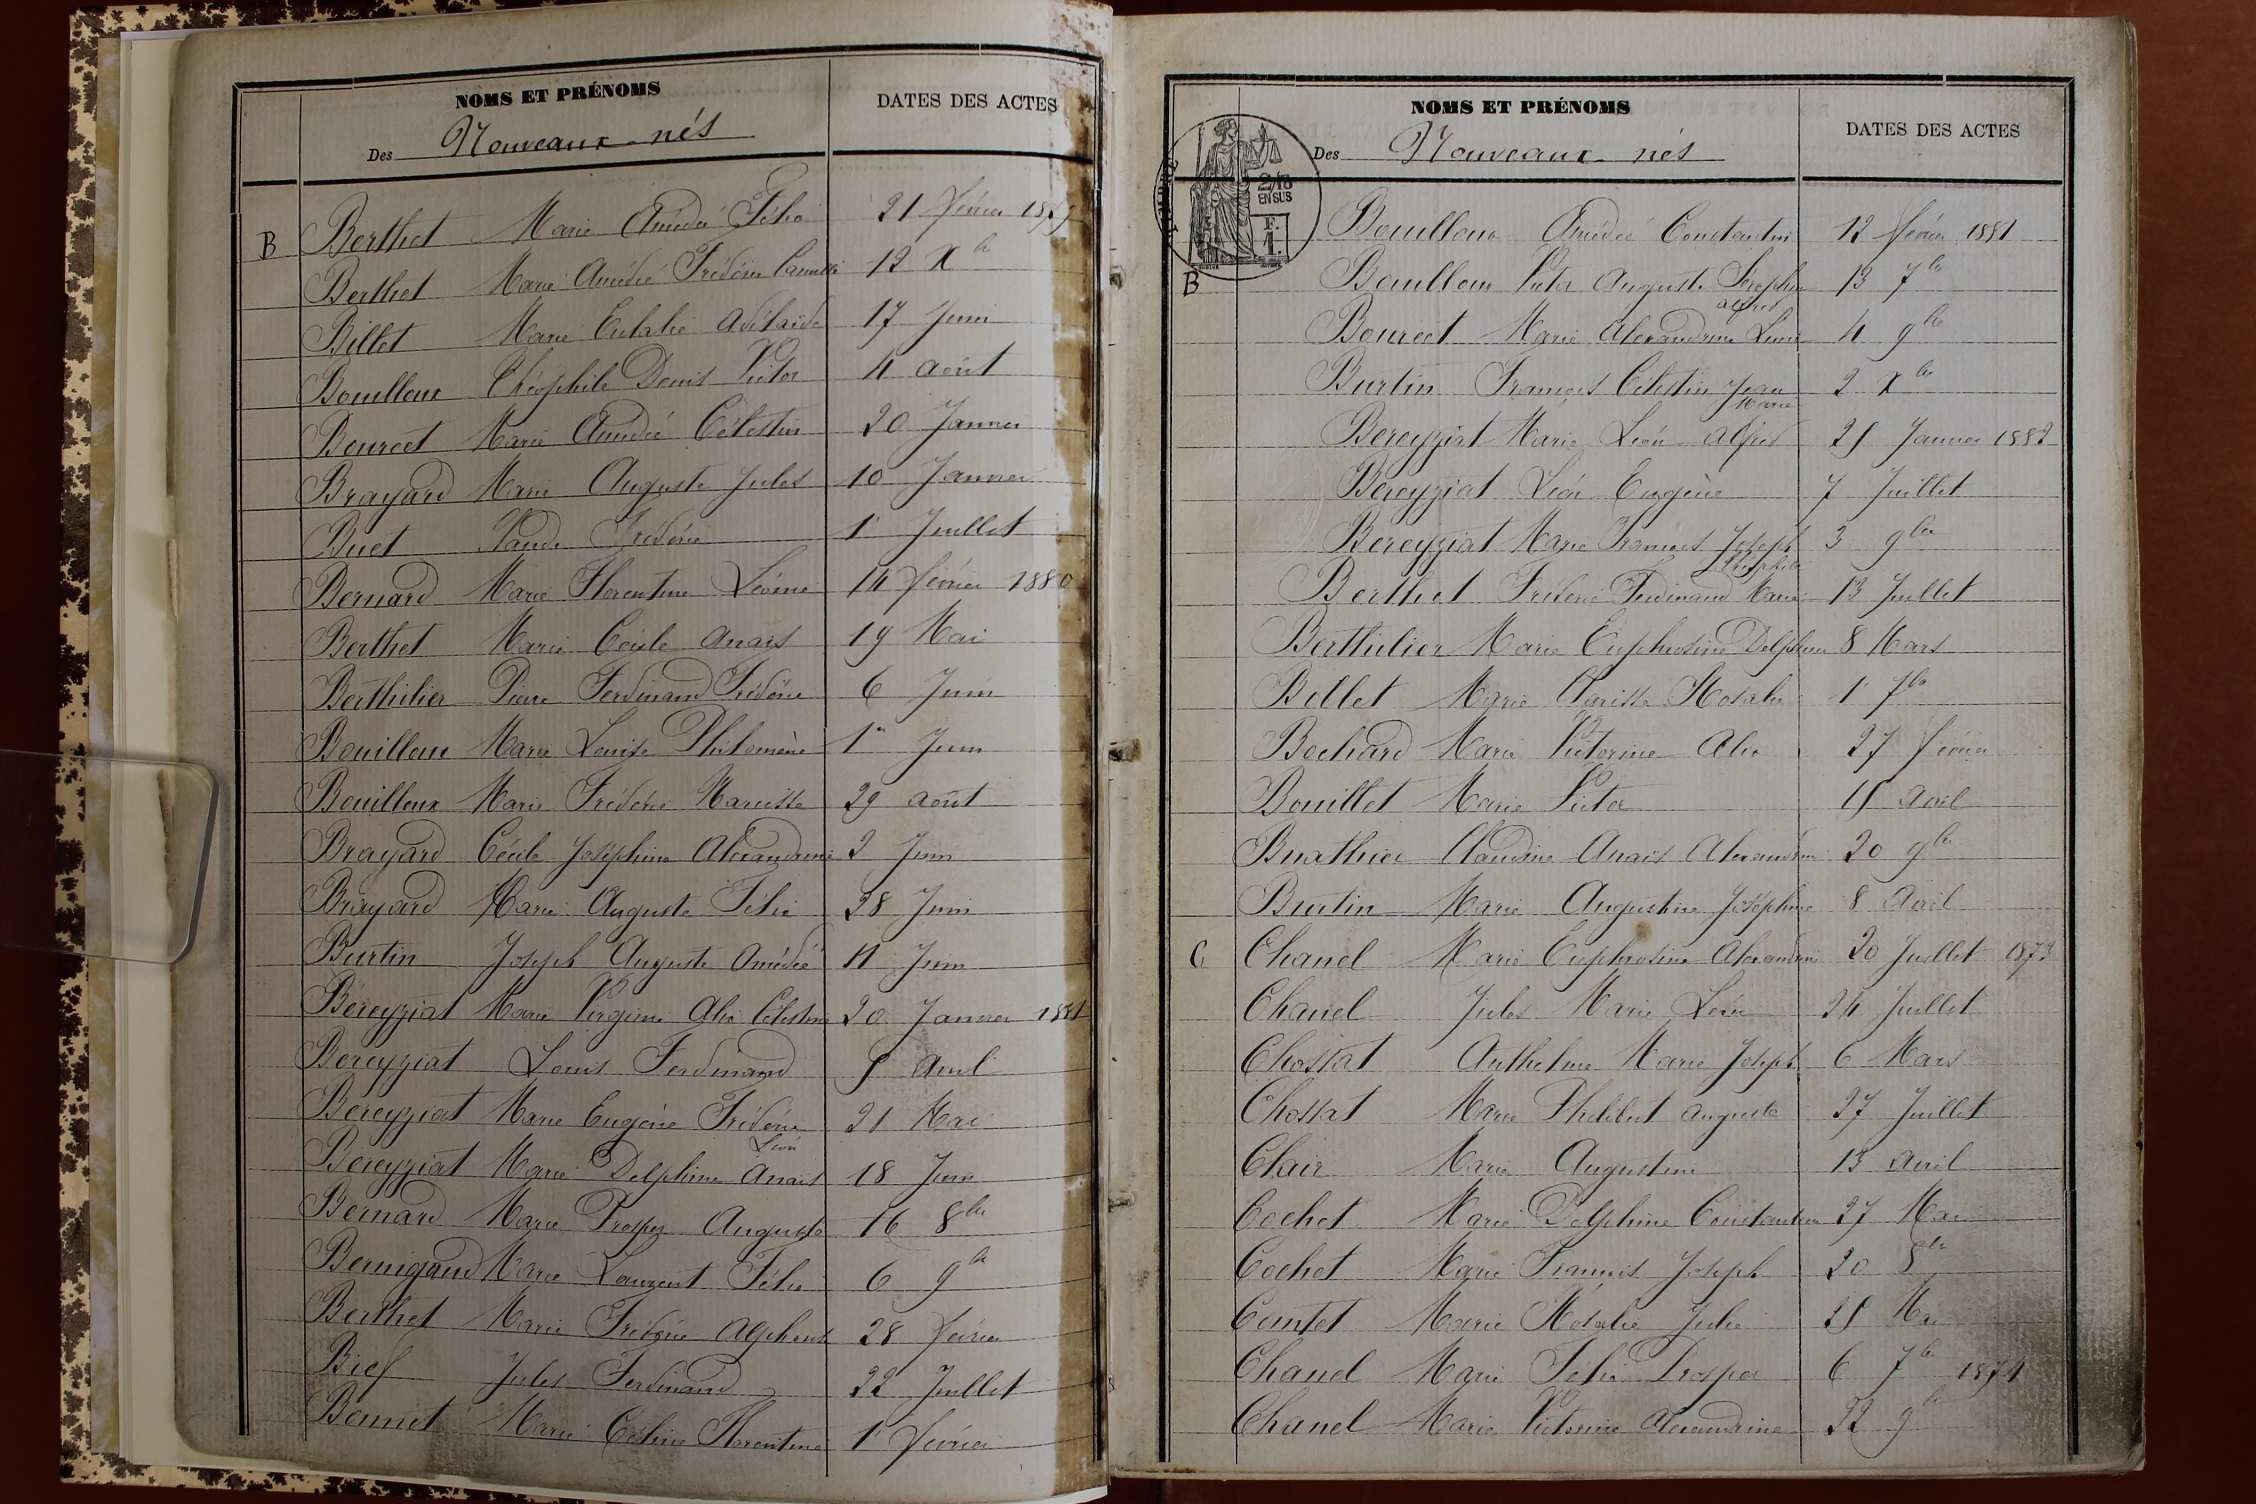 NOMS ET PRÉNOMS
DATES DES ACTES
Des Nouveaux-nés
B Berthet Marie Amédée Félix 21 février 1879
Berthet Marie Amédée Frédéric Camille 12 Xbre
Billet Marie Eulalie Adélaïde 17 Juin
Bouilloux Théophile Denis Victor 4 août
Bourcet Marie Amédée Célestin 20 Janvier
Brayard Marie Auguste Jules 10 Janvier
Buet Claude Frédéric 1er Juillet
Bernard Marie Florentine Léonie 14 février 1880
Berthet Marie Cécile Anaïs 19 Mai
Berthilier Pierre Ferdinand Frédéric 6 Juin
Bouilloux Marie Louise Philomène 1er Juin
Bouilloux Marie Frédéric Narcisse 29 août
Brayard Cécile Joséphine Alexandrine 2 Juin
Brayard Marie Auguste Félix 28 Juin
Burtin Joseph Auguste Amédée 11 Juin
Béreyziat Marie Virginie Alix Célestine 20 Janvier 1881
Bereyziat Louis Ferdinand 5 Avril
Bereyziat Marie Eugène Frédéric Léon 21 Mai
Bereyziat Marie Delphine Anaïs 18 Juin
Bernard Marie Prosper Auguste 16 8bre
Bernigaud Marie Laurent Félix 6 9bre
Berthet Marie Frédéric Alphonse 28 février
Bief Jules Ferdinand 22 Juillet
Bonnet Marie Céline Florentine 1er février
NOMS ET PRÉNOMS
DATES DES ACTES
Des Nouveaux-nés
2/10
EN SUS
F.
1.
Bouilloux Amédée Constantin 12 février 1881
B Bouilloux Victor Auguste Séraphin Alfred 13 7bre
Bourcet Marie Alexandrine Lucie 4 9bre
Burtin François Célestin Jean Marie 2 Xbre
Bereyziat Marie Léon Alfred 25 Janvier 1882
Béreyziat Léon Eugène 7 Juillet
Bereyziat Marie François Joseph Théophile 3 9bre
Berthet Frédéric Ferdinand Marie 13 Juillet
Berthilier Marie Euphrosine Delphine 8 Mars
Billet Marie Clarisse Rosalie 1er 7bre
Bochard Marie Victorine Alix 27 février
Bouillet Marie Victor 15 Avril
Buathier Claudine Anaïs Alexandrine 20 9bre
Burtin Marie Augustine Joséphine 8 Avril
C Chanel Marie Euphrosine Alexandrine 20 Juillet 1873
Chanel Jules Marie Léon 24 Juillet
Chossat Anthelme Marie Joseph 6 Mars
Chossat Marie Philibert Auguste 27 Juillet
Clair Marie Augustine 13 Avril
Cochet Marie Delphine Constantine 27 Mai
Cochet Marie François Joseph 20 8bre
Comtet Marie Rosalie Julie 25 Mai
Chanel Marie Félix Prosper 6 7bre 1874
Chanel Marie Victorine Alexandrine 22 9bre